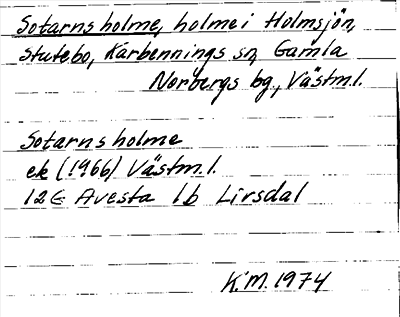 Sotarns holme, holme i Holmsjön,
Stutebo, Karbennings sn, Gamla
Norbergs bg., Västm.l.
Sotarns holme
ek (1966) Västm.l.
12G Avesta 1b Lirsdal
K.M. 1974